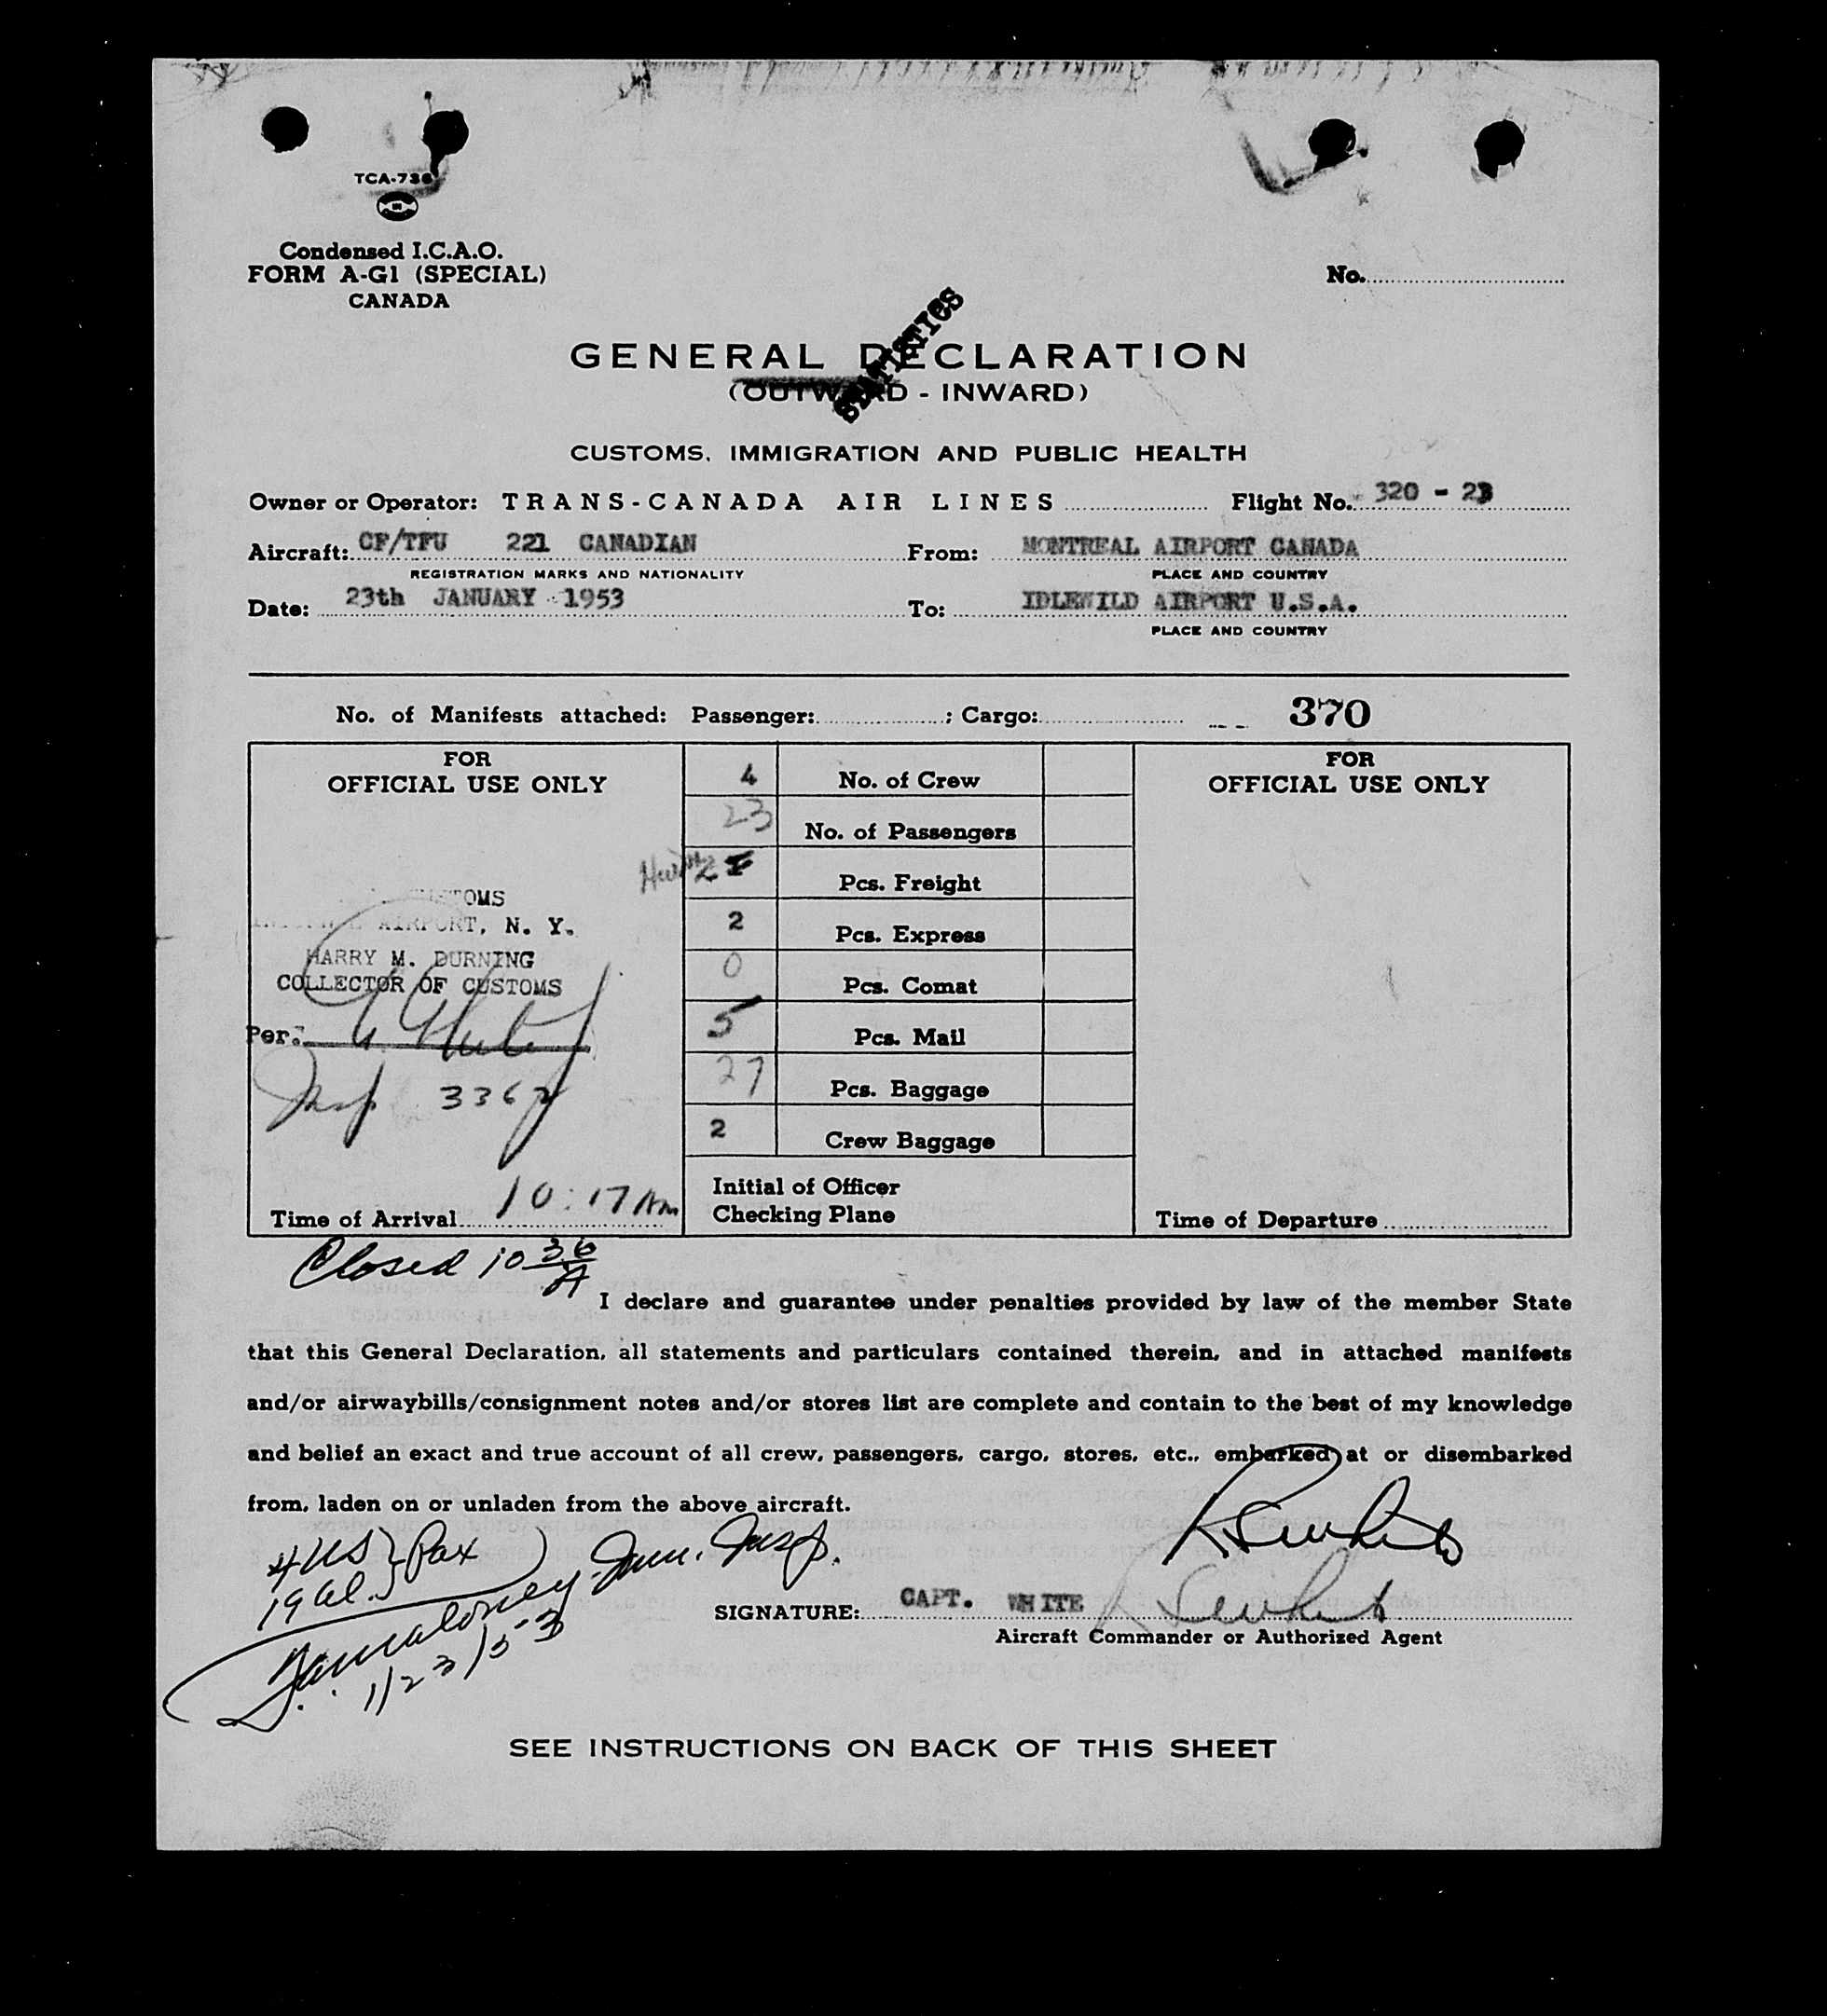 TCA-736
Condensed I.C.A.O.
FORM A-G1 (SPECIAL)
CANADA
No.
STATISTICS
GENERAL DECLARATION
(OUTWARD - INWARD)
CUSTOMS, IMMIGRATION AND PUBLIC HEALTH
Owner or Operator: TRANS-CANADA AIR LINES Flight No. 320 - 23
Aircraft: CF/TFU 221 CANADIAN From: MONTREAL AIRPORT CANADA
REGISTRATION MARKS AND NATIONALITY PLACE AND COUNTRY
Date: 23th JANUARY 1953 To: IDLEWILD AIRPORT U.S.A.
PLACE AND COUNTRY
No. of Manifests attached: Passenger: ; Cargo: 370
FOR
OFFICIAL USE ONLY
CUSTOMS
AIRPORT, N. Y.
HARRY M. DURNING
COLLECTOR OF CUSTOMS
Per:
Insp 3362
Time of Arrival 10:17 Am
4 No. of Crew
23 No. of Passengers
2 Pcs. Freight
2 Pcs. Express
0 Pcs. Comat
5 Pcs. Mail
27 Pcs. Baggage
2 Crew Baggage
Initial of Officer
Checking Plane
FOR
OFFICIAL USE ONLY
Time of Departure
Closed 10 36/A
I declare and guarantee under penalties provided by law of the member State
that this General Declaration, all statements and particulars contained therein, and in attached manifests
and/or airwaybills/consignment notes and/or stores list are complete and contain to the best of my knowledge
and belief an exact and true account of all crew, passengers, cargo, stores, etc., embarked at or disembarked
from, laden on or unladen from the above aircraft.
4 US } Pax
19 al.
Imm. Insp.
1/23/53
SIGNATURE: CAPT. WHITE
Aircraft Commander or Authorized Agent
SEE INSTRUCTIONS ON BACK OF THIS SHEET